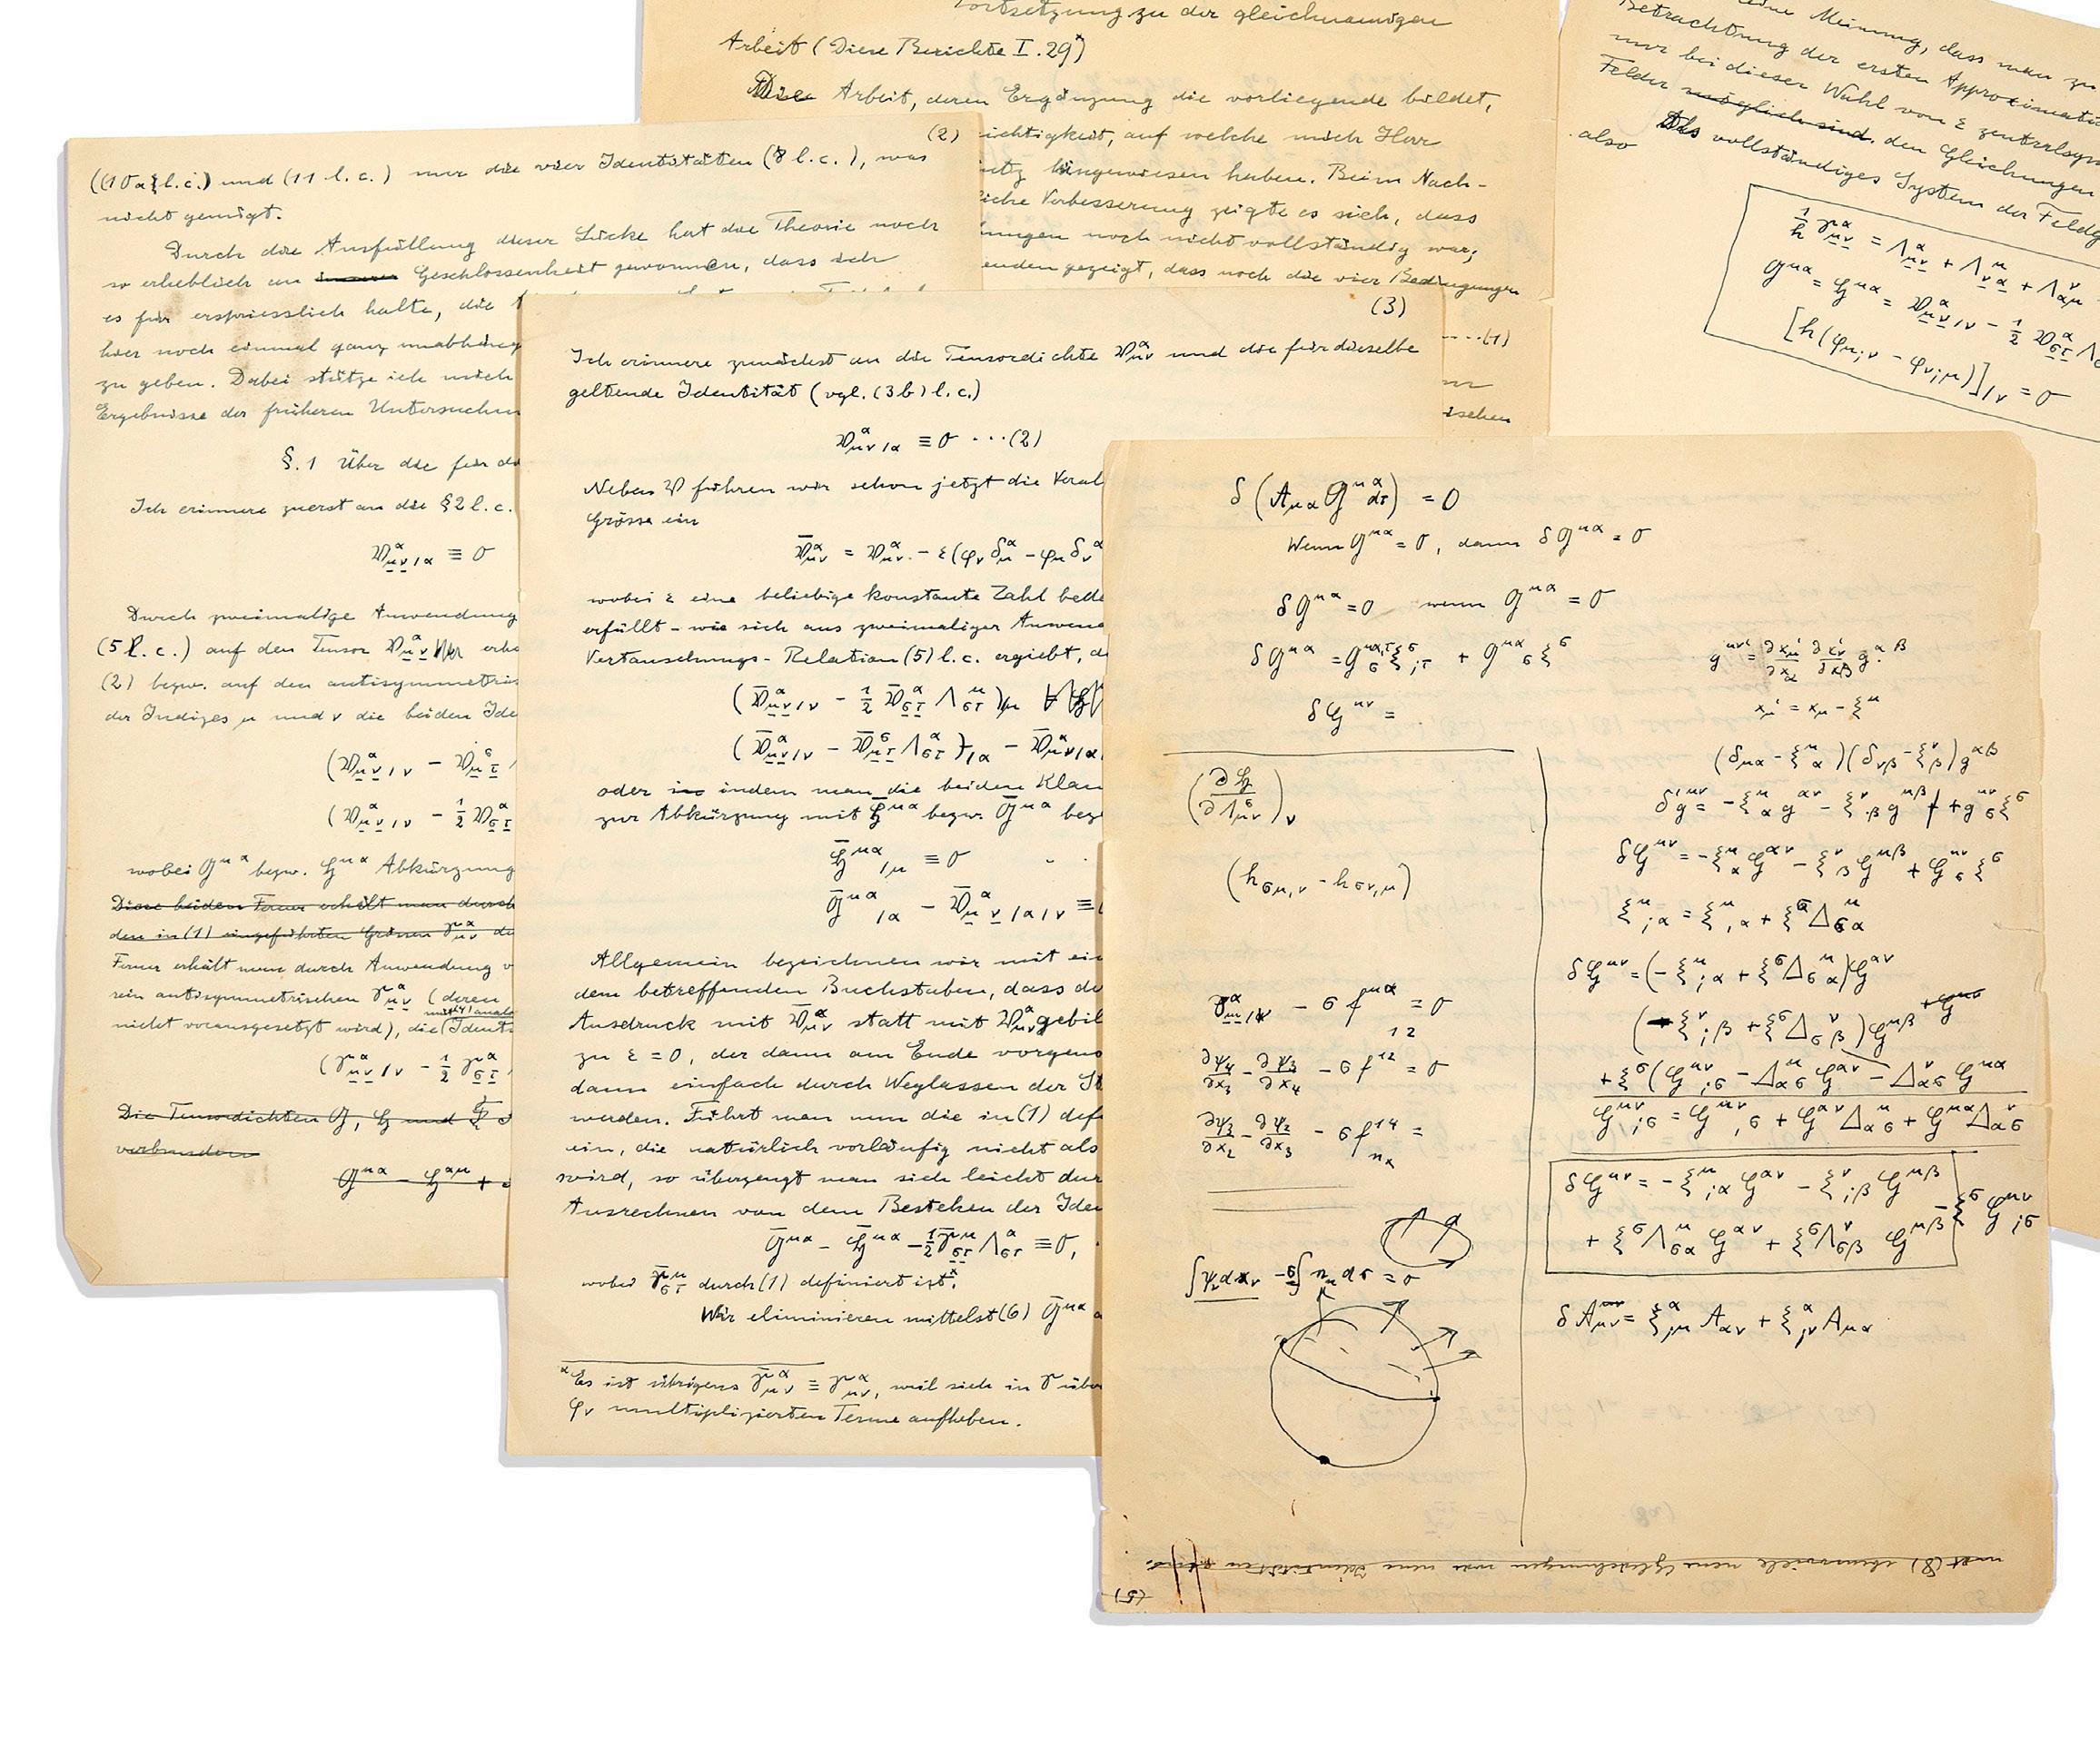 Fortsetzung zu der gleichnamigen
Arbeit (Diese Berichte I. 29*)
Arbeit, deren Ergänzung die vorliegende bildet,
ichtigkeit, auf welche mich Herr
hingewiesen haben. Beim Nach-
liche Verbesserung zeigte es sich, dass
ungen noch nicht vollständig war;
enden gezeigt, dass noch die vier Bedingungen
....(1)
ischen
eine Meinung, dass man zu
Betrachtung der ersten Approximati
nur bei dieser Wahl von ε zentralsym
Felder möglich sind. den Gleichungen
also Als vollständiges System der Feldg
1/h γ^α_μν = Λ^α_μν + Λ^μ_να + Λ^ν_αμ
G^μα = 𝔊^μα = 𝔙^α_μν/ν − 1/2 𝔙^α_στ Λ
[h(φ_μ;ν − φ_ν;μ)]/ν = 0
(2)
und (11 l.c.) nur die vier Identitäten (8 l.c.), was
nicht genügt.
Durch die Ausfüllung dieser Lücke hat die Theorie noch
so erheblich an Geschlossenheit gewonnen, dass ich
es für erspriesslich halte, die
hier noch einmal ganz unabhäng
zu geben. Dabei stütze ich mich
Ergebnisse der früheren Untersuchun
§.1 Über die für di
Ich erinnere zuerst an die §2 l.c.
𝔙^α_μν/α ≡ 0
Durch zweimalige Anwendung
(5 l.c.) auf den Tensor 𝔙^α_μν erh
(2) bezw. auf den antisymmetris
der Indizes μ und ν die beiden Ide
(𝔙^α_μν/ν − 𝔙^σ_μτ
(𝔙^α_μν/ν − 1/2 𝔙^α_στ
wobei G^μα bezw. 𝔊^μα Abkürzung
Diese beiden Ferner erhält man durch
den in (1) eingeführten Grössen γ^α_μν de
Ferner erhält man durch Anwendung v
sein antisymmetrischen γ^α_μν (deren
nicht vorausgesetzt wird), die (Identi
(γ^α_μν/ν − 1/2 γ^α_στ
Die Tensordichten G, 𝔊 und
verbunden
G^μα − 𝔊^αμ +
(3)
Ich erinnere zunächst an die Tensordichte 𝔙^α_μν und die für dieselbe
geltende Identität (vgl. (3b) l.c.)
𝔙^α_μν/α ≡ 0 ...(2)
Neben 𝔙 führen wir schon jetzt die
Grösse ein
𝔙̄^α_μν = 𝔙^α_μν − ε(φ_ν δ^α_μ − φ_μ δ_ν^α
wobei ε eine beliebige konstante Zahl bede
erfüllt – wie sich aus zweimaliger Anwen
Vertauschungs-Relation (5) l.c. ergiebt, d
(𝔙̄^α_μν/ν − 1/2 𝔙̄^α_στ Λ^μ_στ)/μ
(𝔙̄^α_μν/ν − 𝔙̄^σ_μτ Λ^α_στ)/α − 𝔙̄^α_μν/α
oder indem man die beiden Klam
zur Abkürzung mit 𝔊̄^μα bezw. Ḡ^μα bez
𝔊̄^μα/μ ≡ 0
Ḡ^μα/α − 𝔙̄^α_μν/α/ν ≡
Allgemein bezeichnen wir mit ein
dem betreffenden Buchstaben, dass de
Ausdruck mit 𝔙̄^α_μν statt mit 𝔙^α_μν gebil
zu ε = 0, der dann am Ende vorgeno
dann einfach durch Weglassen der St
werden. Führt man nun die in (1) def
ein, die natürlich vorläufig nicht als
wird, so überzeugt man sich leicht dur
Ausrechnen von dem Bestehen der Iden
Ḡ^μα − 𝔊̄^μα − 1/2 γ̄^μ_στ Λ^α_στ ≡ 0,
wobei γ̄^μ_στ durch (1) definiert ist.*
Wir eliminieren mittelst (6) Ḡ^μα
*Es ist übrigens γ̄^α_μν ≡ γ^α_μν, weil sich in γ übe
φ_ν multiplizierten Terme aufheben.
δ(A_μα G^μα dτ) = 0
Wenn G^μα = 0, dann δG^μα = 0
δG^μα = 0 wenn G^μα = 0
δG^μα = G^μα,τ_σ ξ^σ_;τ + G^μα_σ ξ^σ
δ𝔊^μν =
(∂𝔊/∂Λ^σ_μν)_ν
(h_σμ,ν − h_σν,μ)
γ^α_μν/ν − σ f^μα = 0
∂ψ4/∂x3 − ∂ψ3/∂x4 − σ f^12 = 0
∂ψ3/∂x2 − ∂ψ2/∂x3 − σ f^14 =
n_x
∫ψ_ν dx_ν − σ∫n_μ dσ = 0
g^μν' = ∂x'_μ/∂x_α ∂x'_ν/∂x_β g^αβ
x'_μ = x_μ − ξ^μ
(δ_μα − ξ^μ_α)(δ_νβ − ξ^ν_β) g^αβ
δg^μν = −ξ^μ_α g^αν − ξ^ν_β g^μβ + g^μν_σ ξ^σ
δ𝔊^μν = −ξ^μ_α 𝔊^αν − ξ^ν_β 𝔊^μβ + 𝔊^μν_σ ξ^σ
ξ^μ_;α = ξ^μ_,α + ξ^σ Δ^μ_σα
δ𝔊^μν = (−ξ^μ_;α + ξ^σ Δ^μ_σα) 𝔊^αν
(−ξ^ν_;β + ξ^σ Δ^ν_σβ) 𝔊^μβ
+ξ^σ(𝔊^μν_;σ − Δ^μ_ασ 𝔊^αν − Δ^ν_ασ 𝔊^μα
𝔊^μν_;σ = 𝔊^μν_,σ + 𝔊^αν Δ^μ_ασ + 𝔊^μα Δ^ν_ασ
δ𝔊^μν = −ξ^μ_;α 𝔊^αν − ξ^ν_;β 𝔊^μβ
+ ξ^σ Λ^μ_σα 𝔊^αν + ξ^σ Λ^ν_σβ 𝔊^μβ − ξ^σ 𝔊^μν_;σ
δA_μν = ξ^α_;μ A_αν + ξ^α_;ν A_μα
(8) ebensoviele neue Gleichungen wie neue Identitäten
(5)